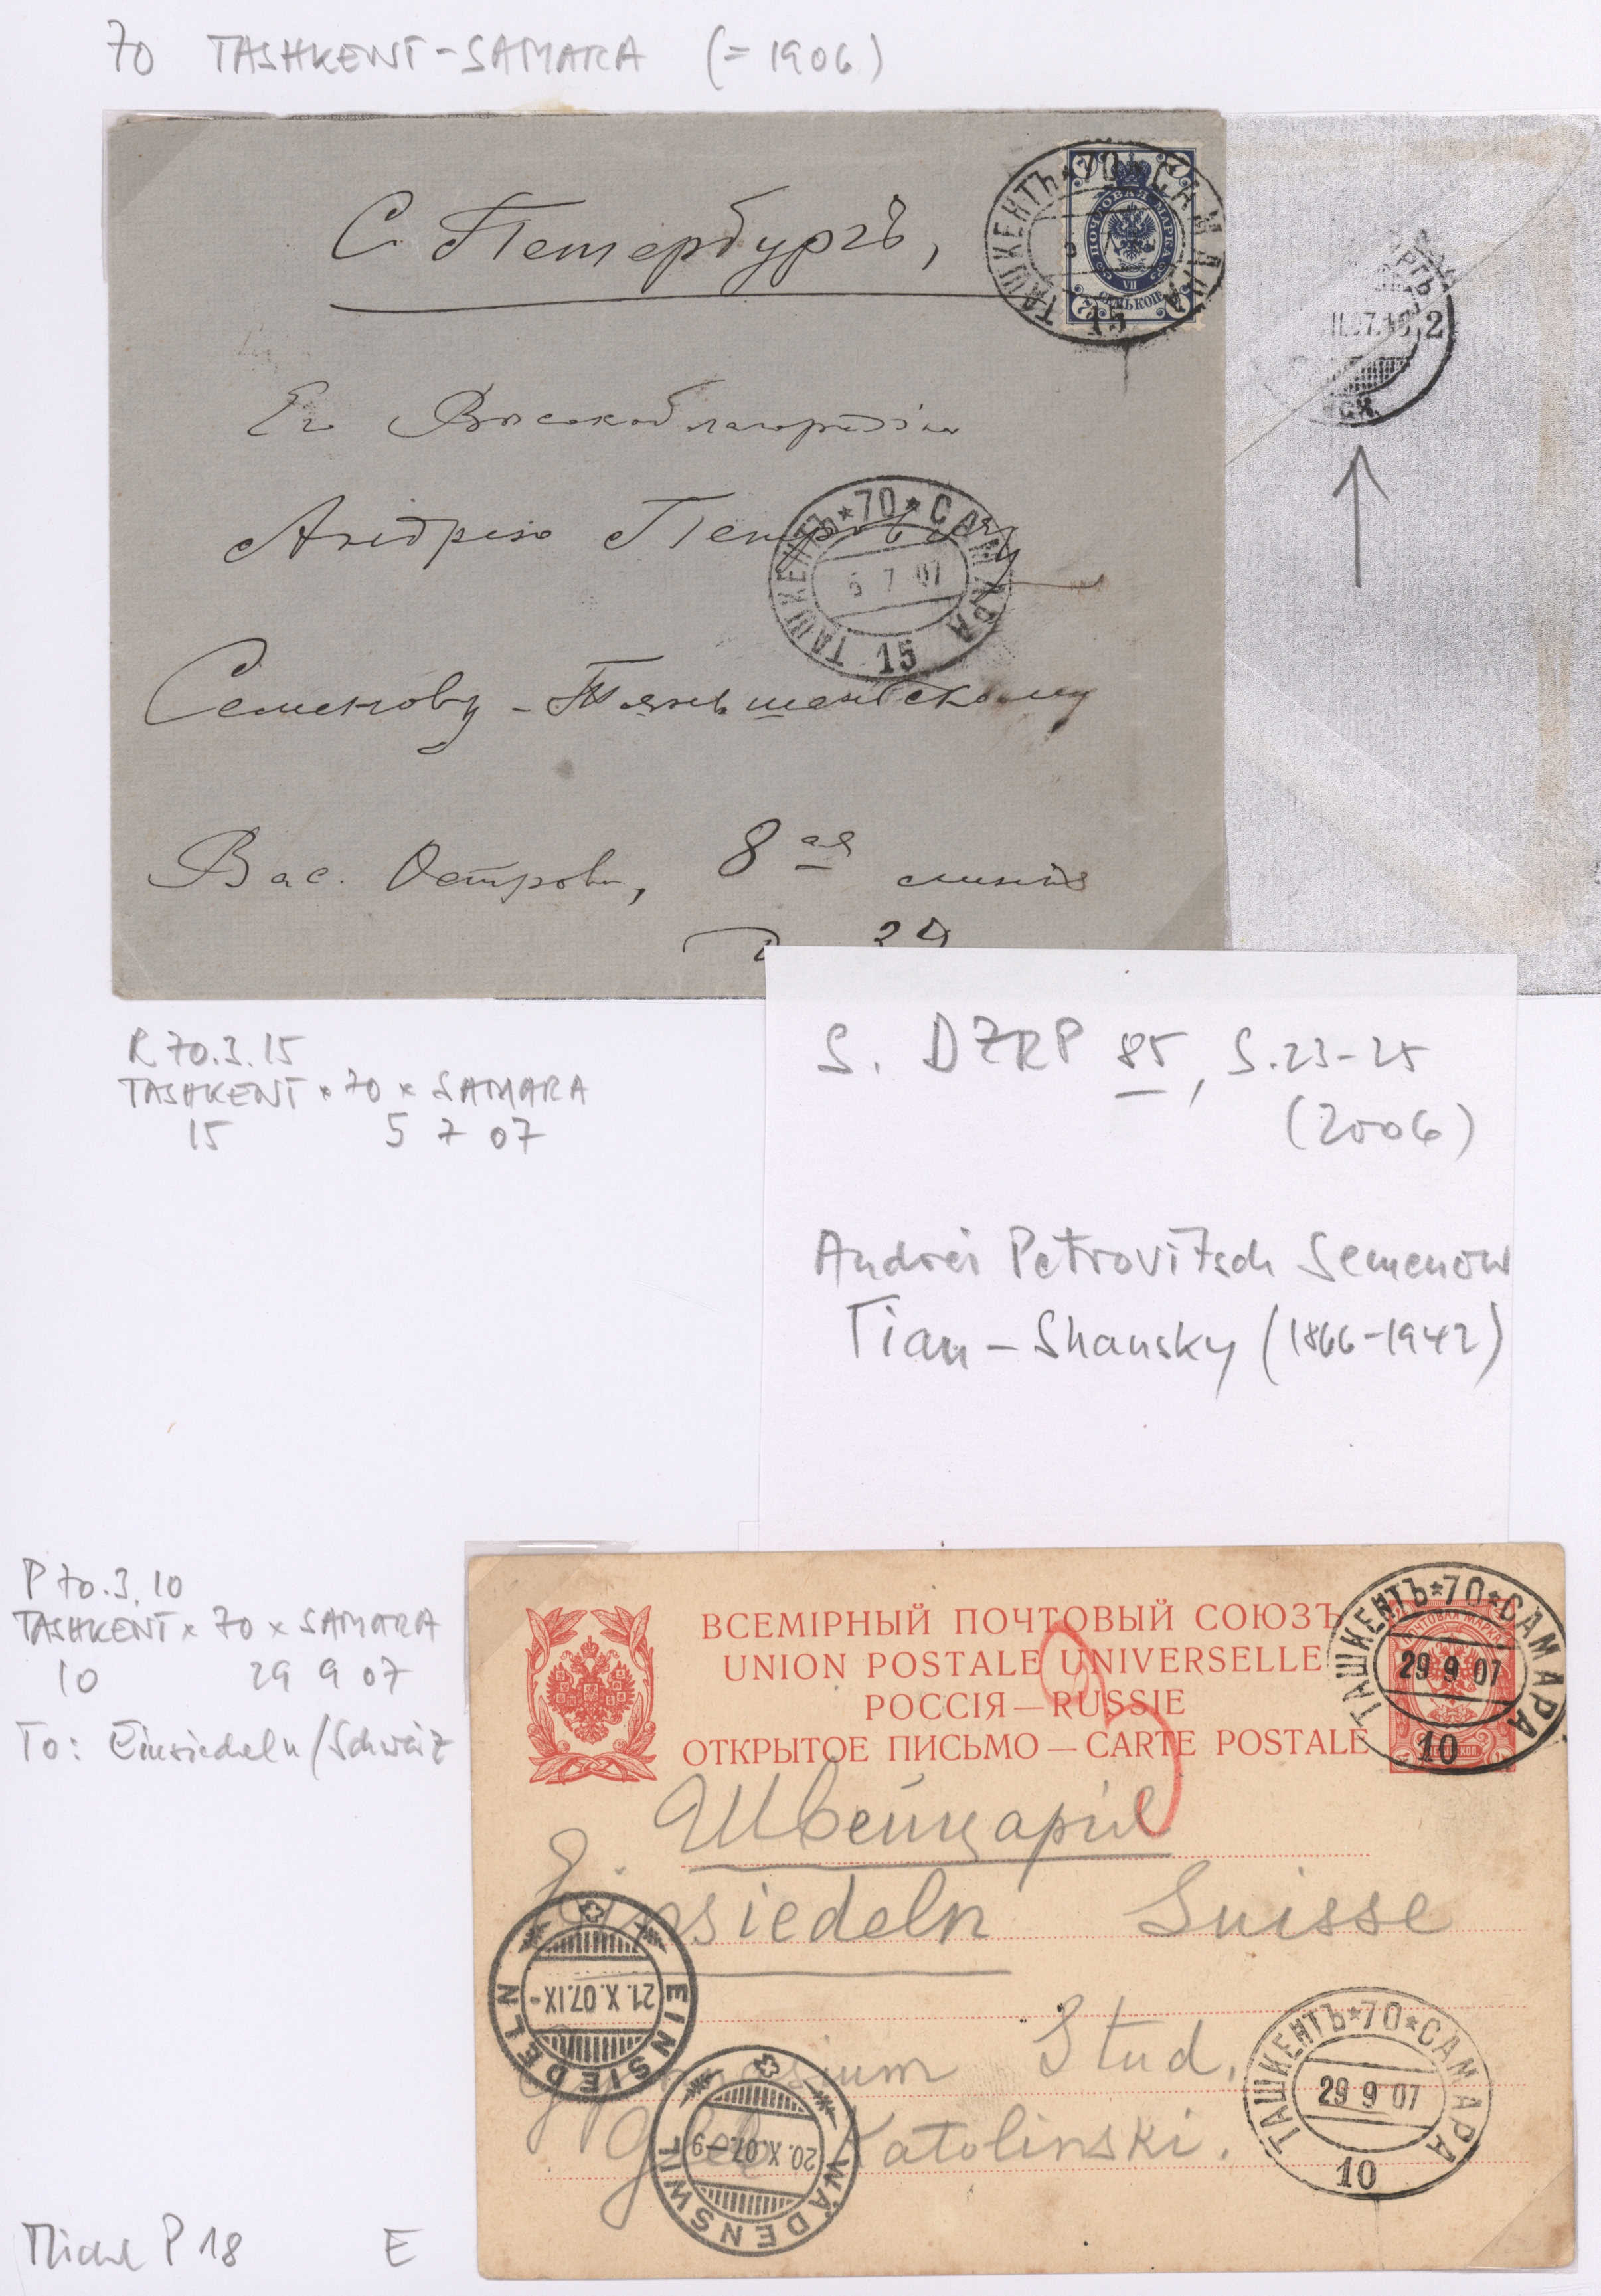 70 TASHKENT-SAMARA (= 1906)
ТАШКЕНТЪ * 70 * САМАРА
15
ПОЧТОВАЯ МАРКА
VII
СЕМЬ КОП.
С. Петербургъ,
Его Высокоблагородію
Андрею Петровичу
ТАШКЕНТЪ * 70 * САМАРА
5 7 07
15
Семенову-Тяньшанскому
Вас. Островъ, 8 ая линія
Д 39
II.07.10 2
R 70.3.15
TASHKENT * 70 * SAMARA
15 5 7 07
S. DZRP 85, S. 23-25
(2006)
Andrei Petrovitsch Semenow
Tian-Shansky (1866-1942)
P 70.3.10
TASHKENT * 70 * SAMARA
10 29 9 07
To: Einsiedeln/Schweiz
ВСЕМІРНЫЙ ПОЧТОВЫЙ СОЮЗЪ
UNION POSTALE UNIVERSELLE
РОССІЯ — RUSSIE
ОТКРЫТОЕ ПИСЬМО — CARTE POSTALE
ПОЧТОВАЯ МАРКА
ТАШКЕНТЪ * 70 * САМАРА
29 9 07
10
Швейцарія
Einsiedeln Suisse
EINSIEDELN
21.X.07.IX-
Gymnasium Stud.
Gleb Katolinski.
WÄDENSWIL
20.X.07.-9
ТАШКЕНТЪ * 70 * САМАРА
29 9 07
10
Michel P 18 E